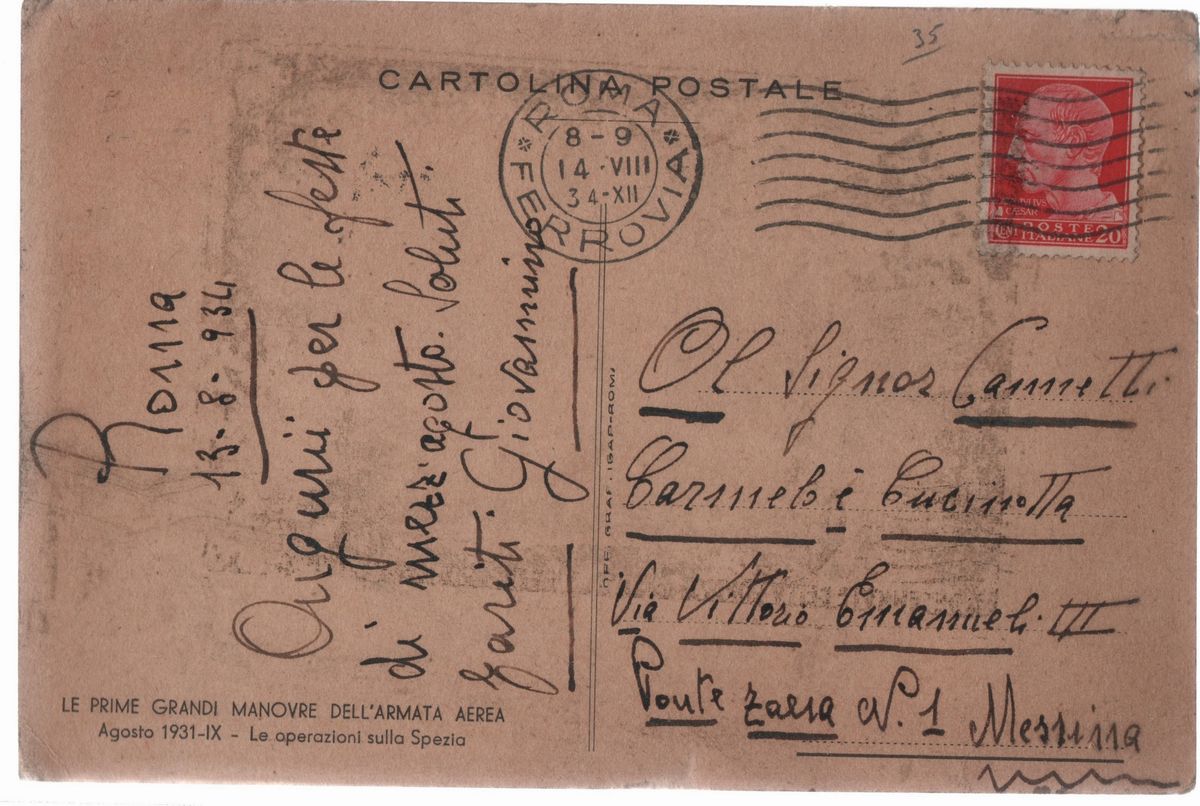 35
CARTOLINA POSTALE
ROMA
FERROVIA
8-9
14·VIII
34-XII
IVLIVS
CAESAR
POSTE
CENT ITALIANE 20
Roma
13-8-934
Auguri per le feste
di mezz'agosto. Saluti.
Giovannino
Al Signor Cannetti
Carmelo è Cucinotta
Via Vittorio Emanuele III
Ponte zaera N. 1 Messina
LE PRIME GRANDI MANOVRE DELL'ARMATA AEREA
Agosto 1931-IX - Le operazioni sulla Spezia
OFF. GRAF. IGAP-ROMA